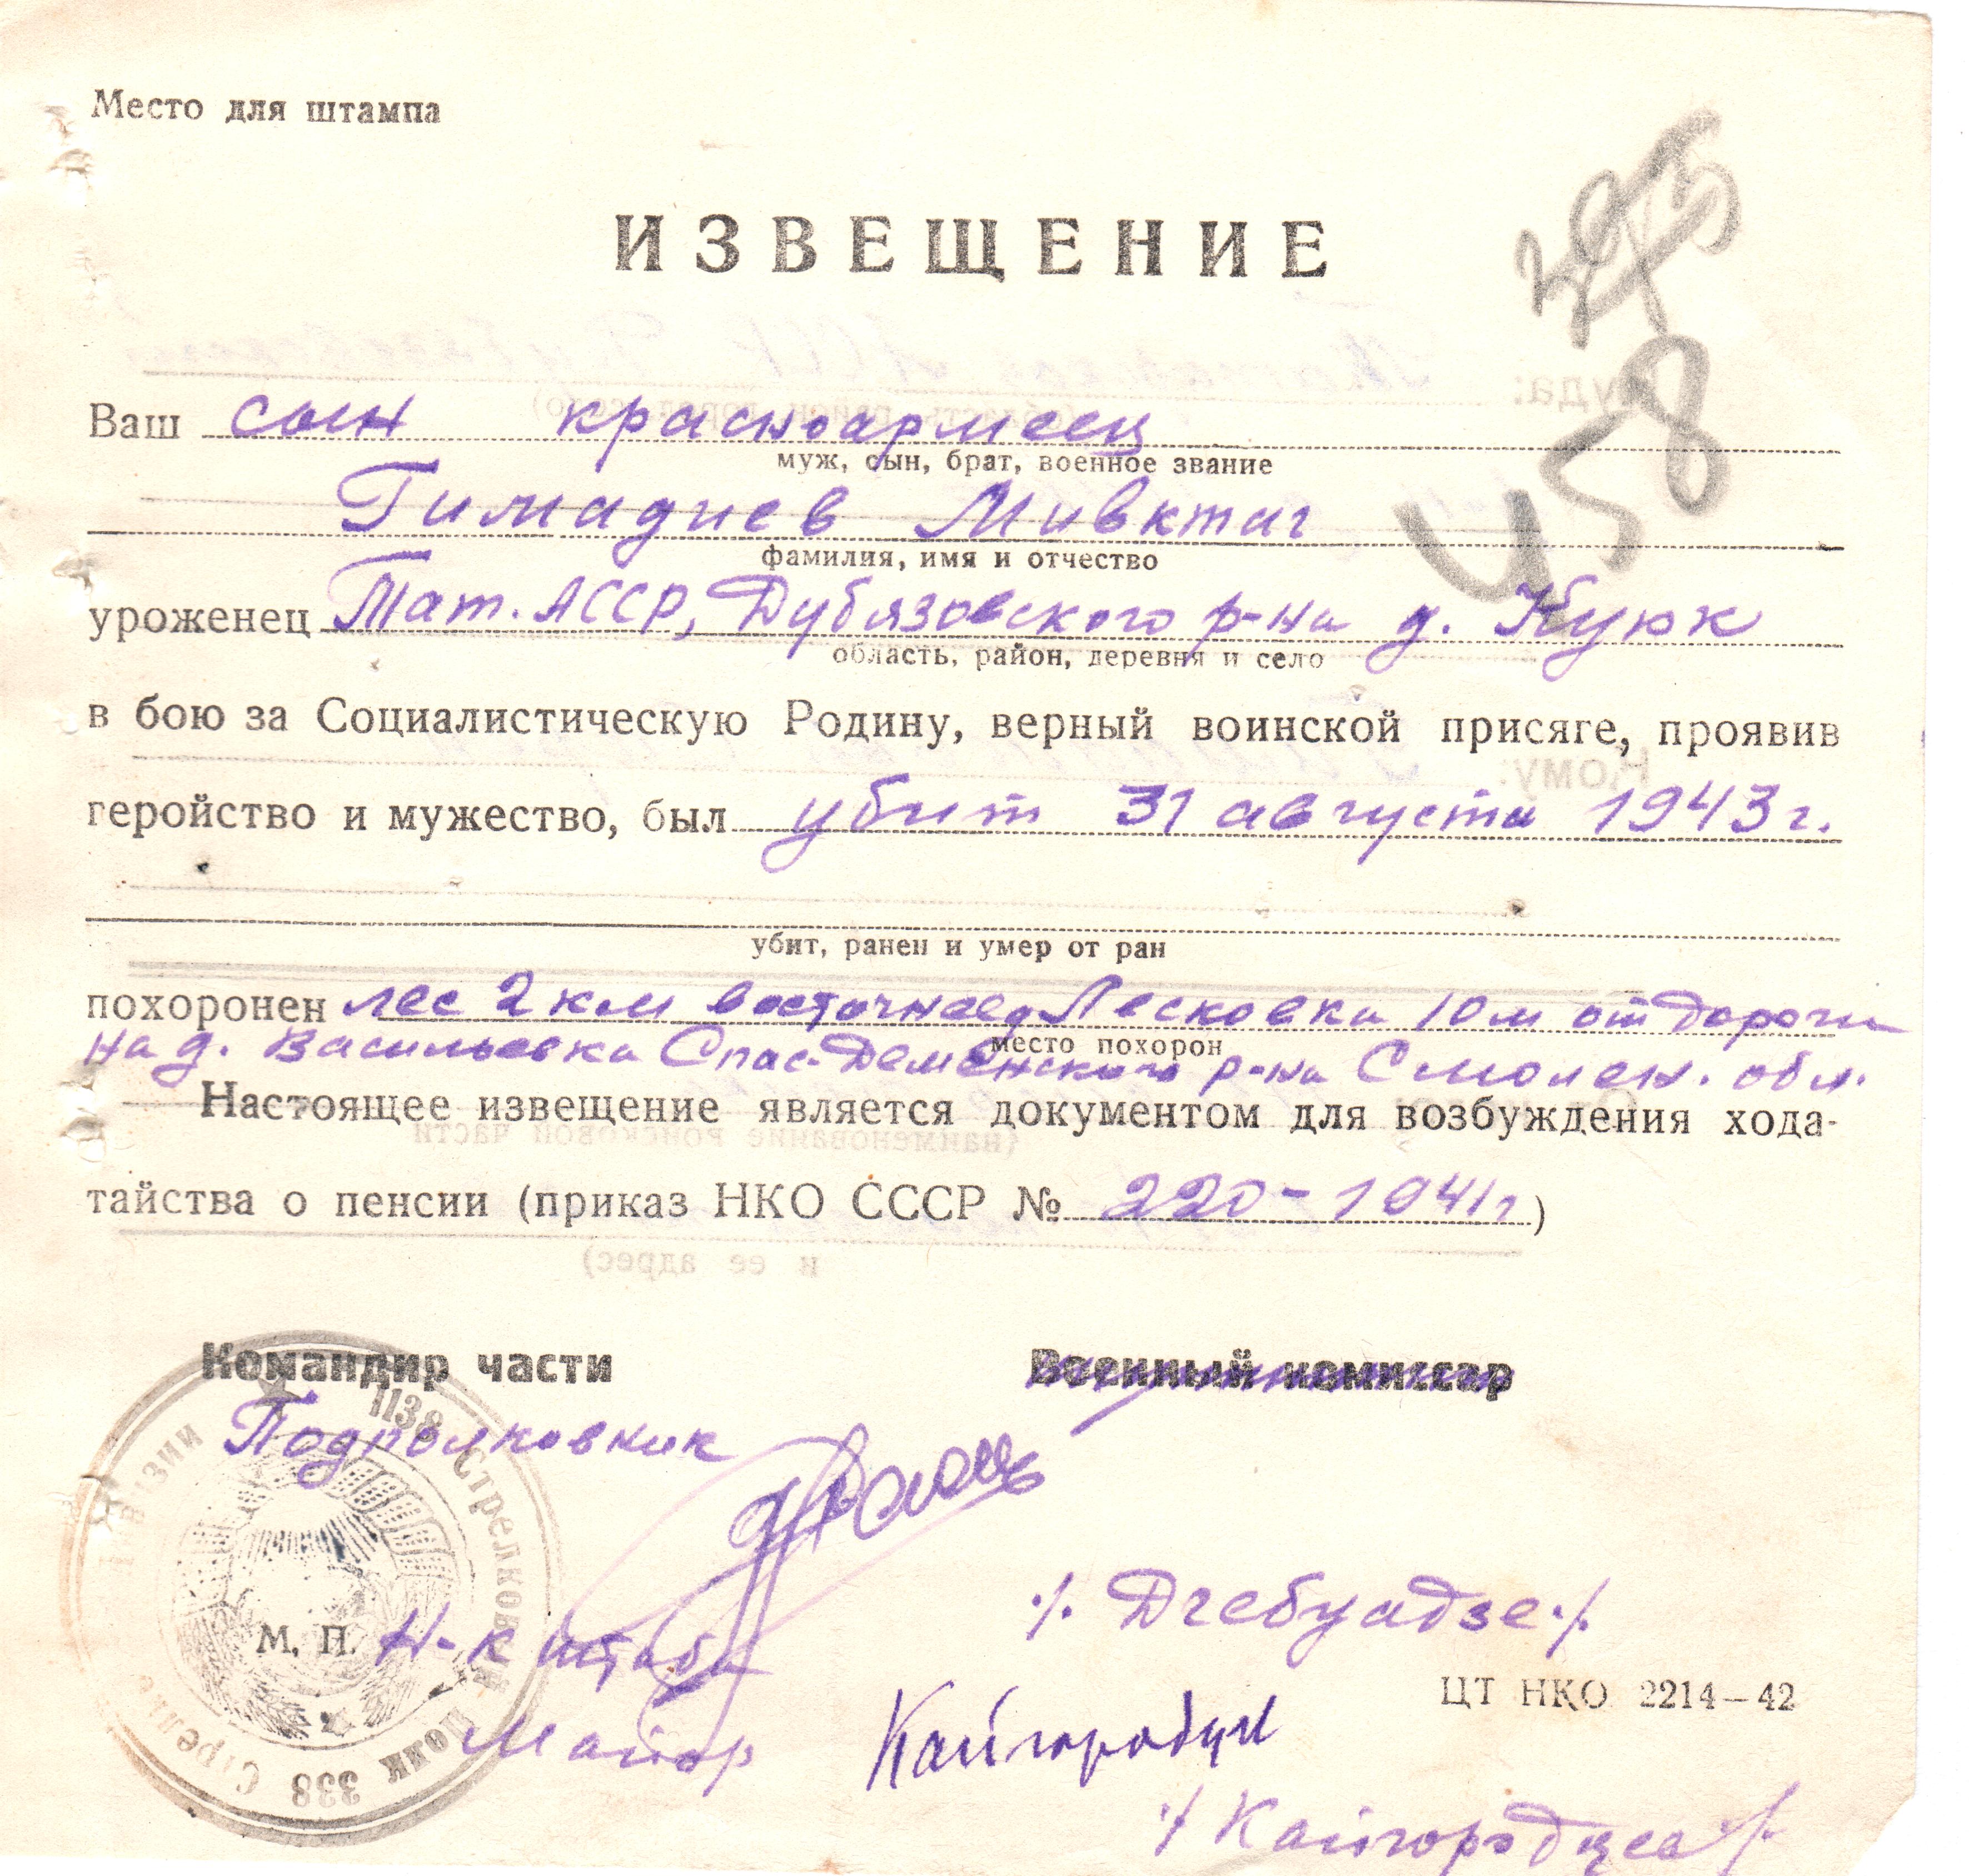 Место для штампа
ИЗВЕЩЕНИЕ
458
Ваш сын красноармеец
муж, сын, брат, военное звание
Гимадиев Мивктаг
фамилия, имя и отчество
уроженец Тат. АССР, Дубязовского р-на д. Курк
область, район, деревня и село
в бою за Социалистическую Родину, верный воинской присяге, проявив
геройство и мужество, был убит 31 августа 1943 г.
убит, ранен и умер от ран
похоронен лес 2 км восточнее д Лесковка 10 м от дороги
место похорон
на д. Васильевка Спас-Деменского р-на Смолен. обл.
Настоящее извещение является документом для возбуждения хода-
тайства о пенсии (приказ НКО СССР № 220-1941г)
Командир части Военный комиссар
Подполковник
/ Дгебуадзе /
М. П. Н-к штаба
ЦТ НКО 2214—42
Майор Кайгородцев
/ Кайгородцев /
1138 Стрелковый полк 338 Стрелк дивизии